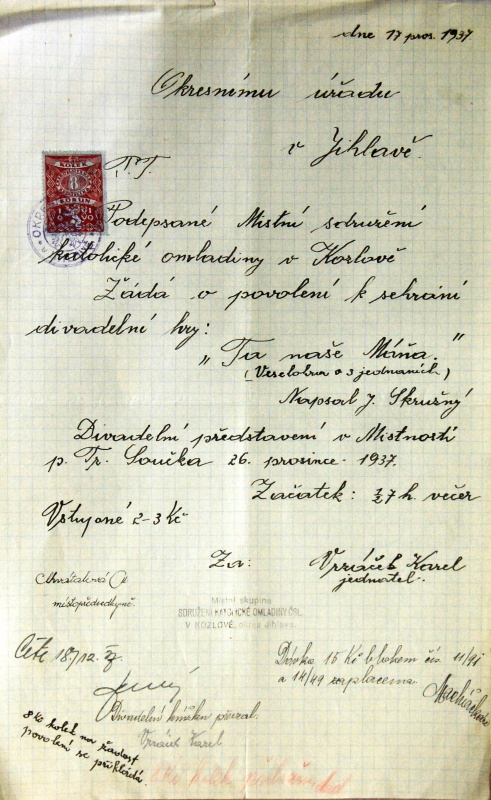 dne 17 pros. 1937.
Okresnímu úřadu
v Jihlavě.
T. T.
KOLEK
8
KORUN
Podepsané Místní sdružení
katolické omladiny v Kozlově
Žádá o povolení k sehrání
divadelní hry:
„Ta naše Máňa."
(Veselohra o 3 jednaních)
Napsal J. Skrušný
Divadelní představení v Místnosti
p. Fr. Součka 26. prosince 1937.
Začátek: ½7 h. večer
Vstupné 2-3 Kč
Za: Vrzáček Karel
jednatel.
místopředsedkyně.
Místní skupina
SDRUŽENÍ KATOLICKÉ OMLADINY ČSL.
V KOZLOVĚ, okres Jihlava.
18/12.
Dávka 15 Kč blokem čís. 11/91
a 14/49 zaplacena
Divadelní knížku převzal.
Vrzáček Karel
8 Kč kolek na žádost
povolení se přikládá.
8 Kč kolek